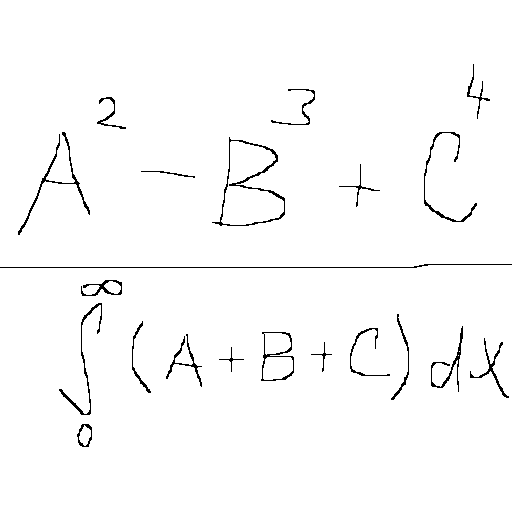 A² − B³ + C⁴
∫₀^∞ (A + B + C) dx